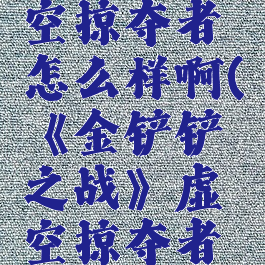 空掠夺者
怎么样啊(
《金铲铲
之战》虚
空掠夺者